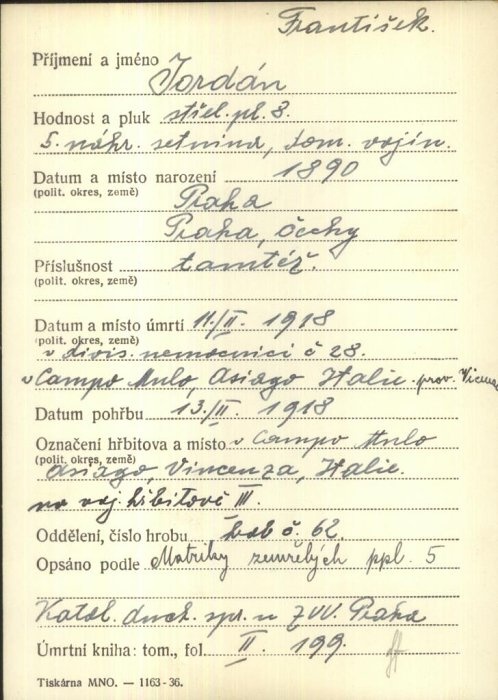 František.
Příjmení a jméno Jordán
Hodnost a pluk střel. pl. 8.
5. náhr. setnina, dom. vojín.
Datum a místo narození 1890
(polit. okres, země)
Praha
Praha, Čechy
Příslušnost tamtéž.
(polit. okres, země)
Datum a místo úmrtí 11./II. 1918
(polit. okres, země)
v divis. nemocnici č 28.
v Campo Mulo, Asiago Italie. prov. Vicenza
Datum pohřbu 13./II. 1918
Označení hřbitova a místo v Campo Mulo
(polit. okres, země)
Asiago, Vincenza, Italie.
na voj. hřbitově III.
Oddělení, číslo hrobu hrob č. 62.
Opsáno podle Matriky zemřelých ppl. 5
Katol. duch. spr. u ZVV. Praha
Úmrtní kniha: tom., fol. II. 199.
Tiskárna MNO. — 1163-36.